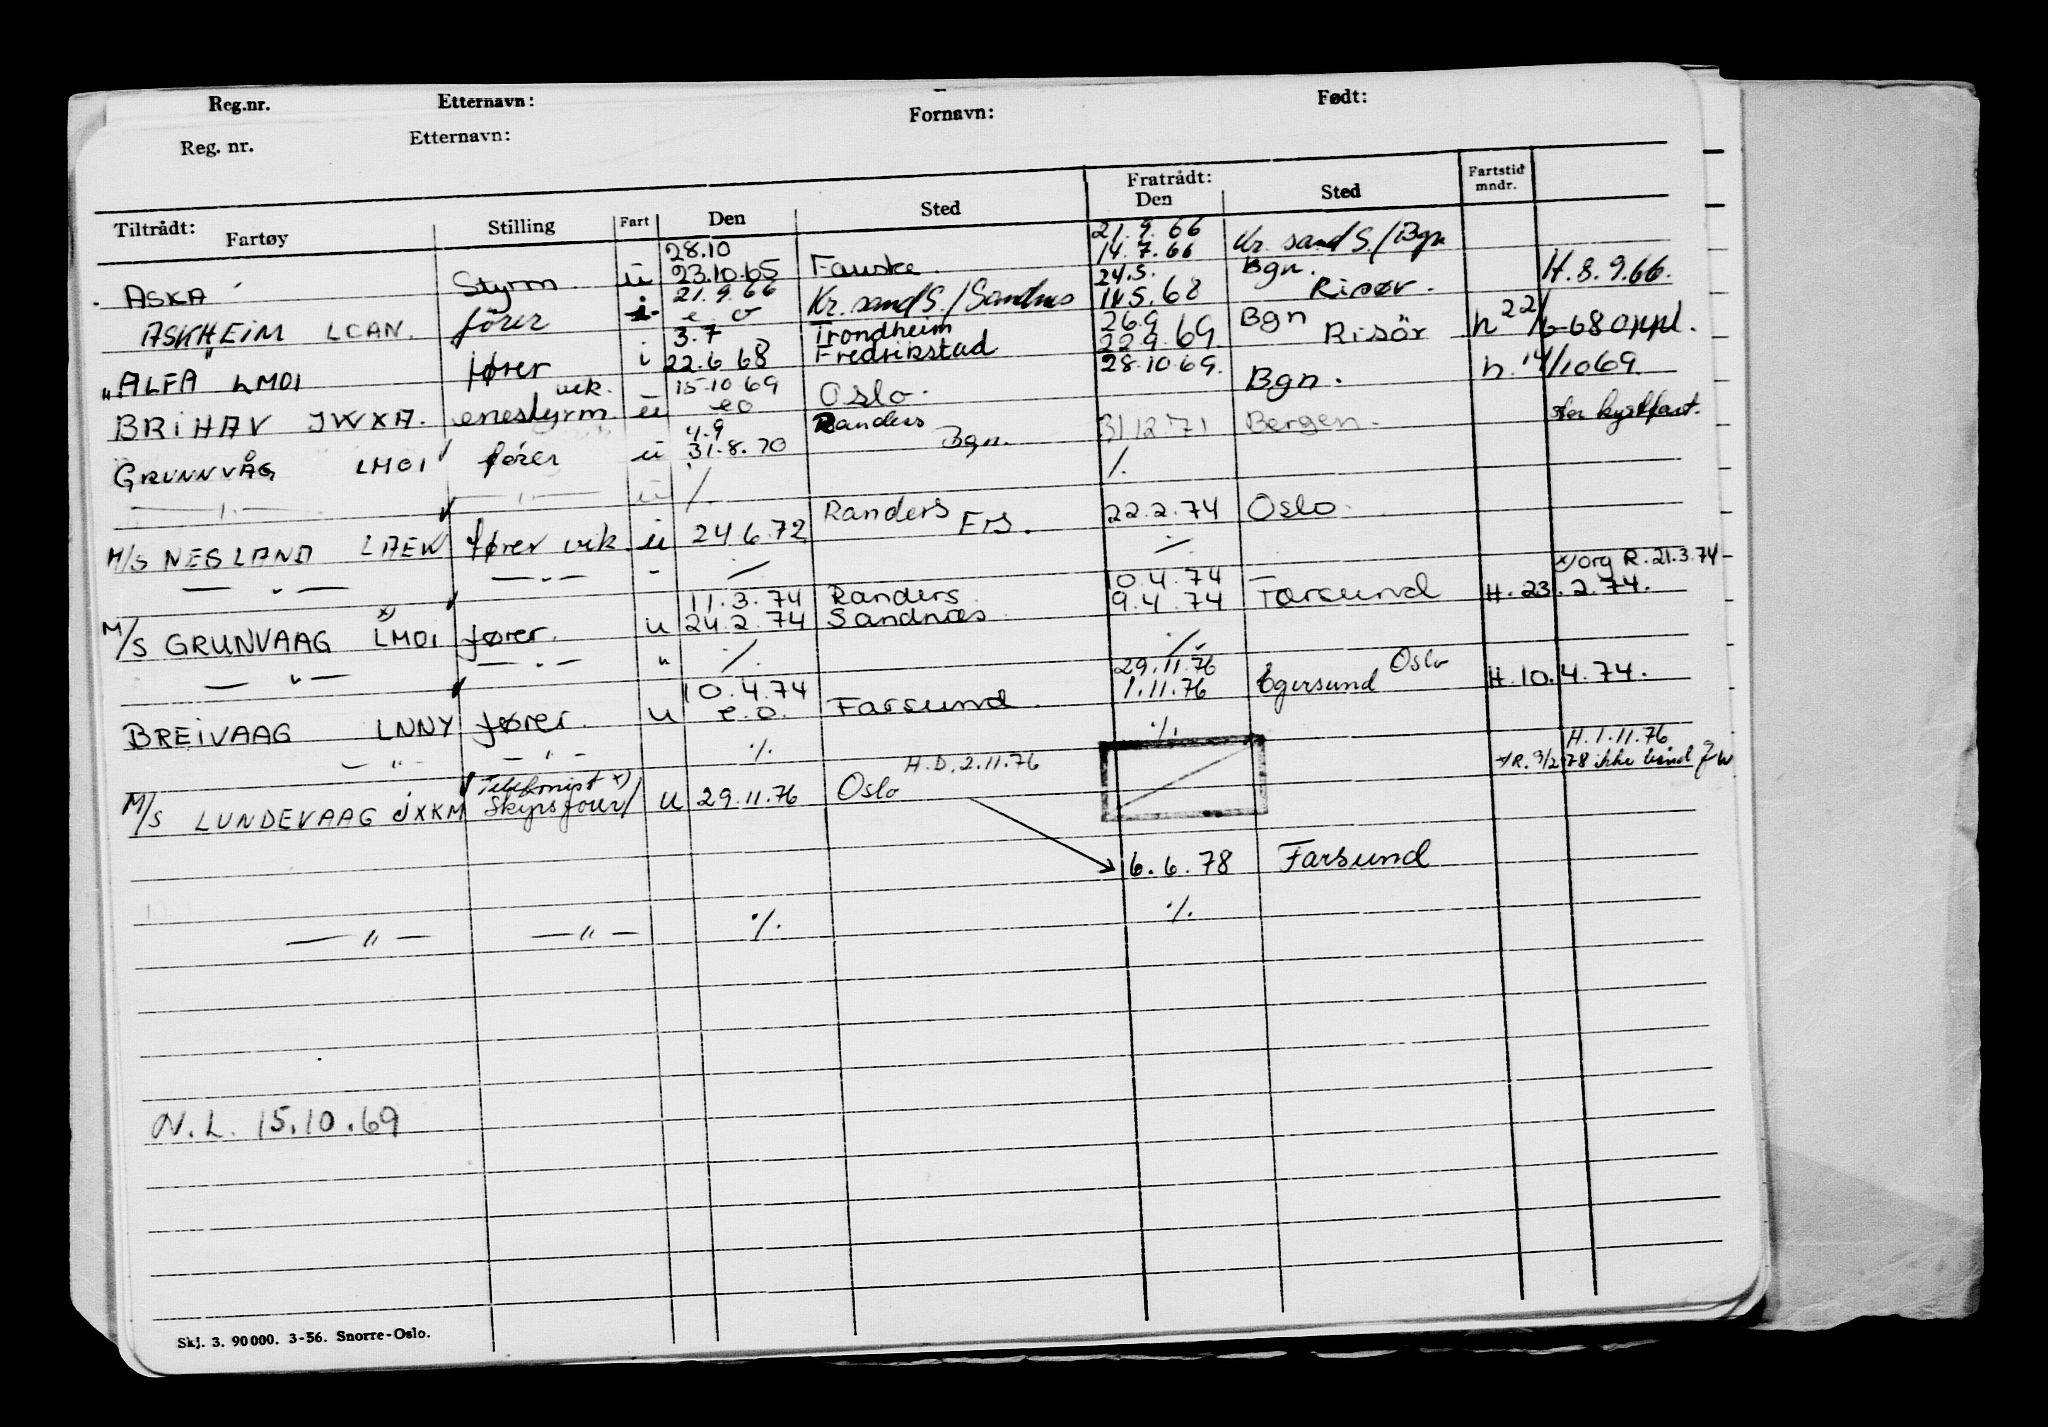 Reg.nr. Etternavn: Fornavn: Født:
Reg. nr. Etternavn:
Tiltrådt: Fartøy Stilling Fart Den Sted Fratrådt: Den Sted Fartstid mndr.
28.10 21.9.66 Kr. sand S./Bgn
ASKA Styrm ü 23.10.65 Fauske. 14.7.66 Bgn. H.8.9.66.
21.9.66 24.5.
ASKHEIM LCAN. fører i e o Kr. sand S./Sandnes 14.5.68 Risør.
3.7 Trondheim 26.9 Bgn
"ALFA LMOI fører i 22.6 68 Fredrikstad 22.9.69 Risör h 22/6-68 oppl.
vik. 15.10 69
BRIHAV JWXA. enestyrm. ü eo Oslo. 28.10.69. Bgn. h. 14/10 69.
4.9 Randers
GRUNNVÅG LMOI fører ü 31.8.70 Bgn. 31.12.71 Bergen. stor kystfart.
—"— —"— ü ./. ./.
Randers
M/S NESLAND LAEW fører vik. ü 24.6.72 Ers. 22.2.74 Oslo.
—"— —"— - ./. ./.
11.3.74 Randers 10.4.74 x) org R. 21.3.74
M/S GRUNVAAG x) LMOI fører. u 24.2.74 Sandnæs. 9.4.74 Farsund H. 23.2.74.
—"— —"— " ./. ./.
10.4.74 29.11.76 Oslo
BREIVAAG LNNY fører. u e.o. Farsund. 1.11.76 Egersund H. 10.4.74.
—"— —"— ./. ./.
H.D. 2.11.76 H.1.11.76
Telefonist x) x/R. 9/2-78 ikke
M/S LUNDEVAAG JXKM u 29.11.76 Oslo
6.6.78 Farsund
—"— —"— ./. ./.
N.L. 15.10.69
Skj. 3. 90000. 3-56. Snorre-Oslo.